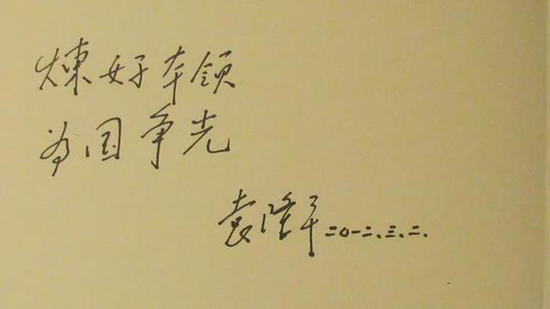 煉好本領
为国争光
袁隆平 二〇一二.三.二.